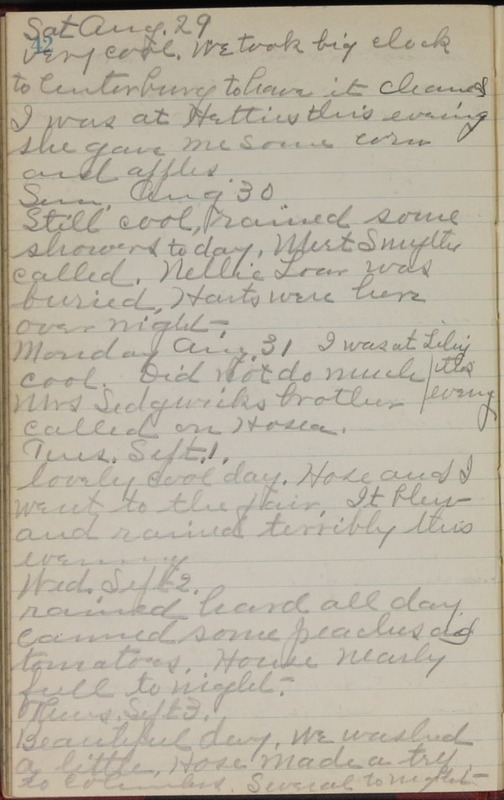 Sat Aug. 29
42
very cool. We took big clock
to Centerburg to have it cleaned
I was at Hetties this evening
she gave me some corn
and apples.
Sun, Aug 30
Still cool, rained some
showers today, Mert Smythe
called. Nellie Loar was
buried, Harts were here
over night-
Monday Aug. 31 I was at Lily
cool. Did not do much this
Mrs Sedgwicks brother eveng
called on Hosea.
Tues. Sept. 1.
lovely cool day. Hose and I
went to the fair, It blew
and rained terribly this
evening
Wed. Sept 2.
rained hard all day.
canned some peaches and
tomatoes. House nearly
full tonight-
Thurs. Sept 3.
Beautiful day, We washed
a little, Hose made a trip
to Columbus. Several tonight-